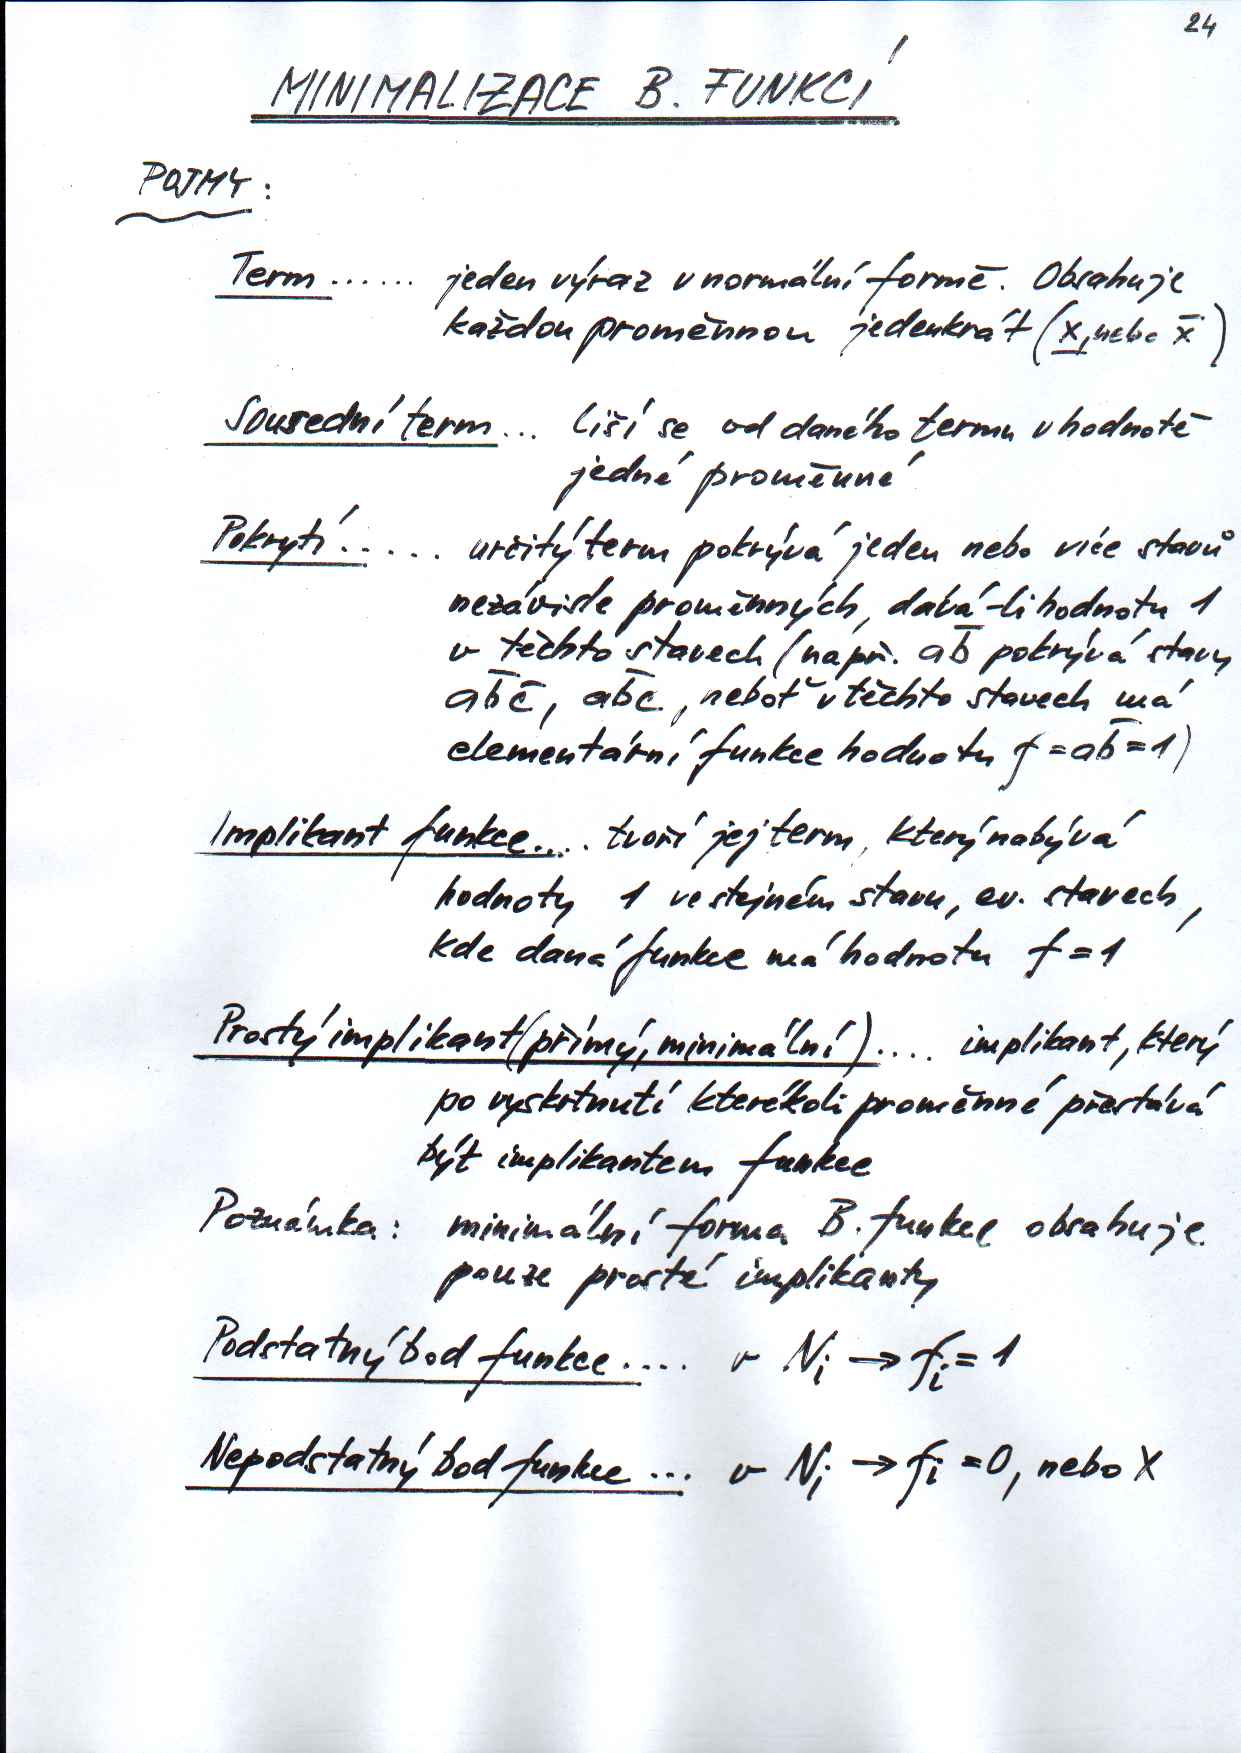 24
MINIMALIZACE B. FUNKCÍ
POJMY:
Term ...... jeden výraz v normální formě. Obsahuje
každou proměnnou jedenkrát (x, nebo x̄)
Sousední term ... liší se od daného termu v hodnotě
jedné proměnné
Pokrytí ..... určitý term pokrývá jeden nebo více stavů
nezávisle proměnných, dává-li hodnotu 1
v těchto stavech (např. ab̄ pokrývá stavy
ab̄c̄, ab̄c, neboť v těchto stavech má
elementární funkce hodnotu f = ab̄ = 1)
Implikant funkce .... tvoří jej term, který nabývá
hodnoty 1 ve stejném stavu, ev. stavech,
kde daná funkce má hodnotu f = 1
Prostý implikant (přímý, minimální) .... implikant, který
po vyškrtnutí kterékoli proměnné přestává
být implikantem funkce
Poznámka: minimální forma B. funkce obsahuje
pouze prosté implikanty
Podstatný bod funkce .... v Ni → fi = 1
Nepodstatný bod funkce ... v Ni → fi = 0, nebo X